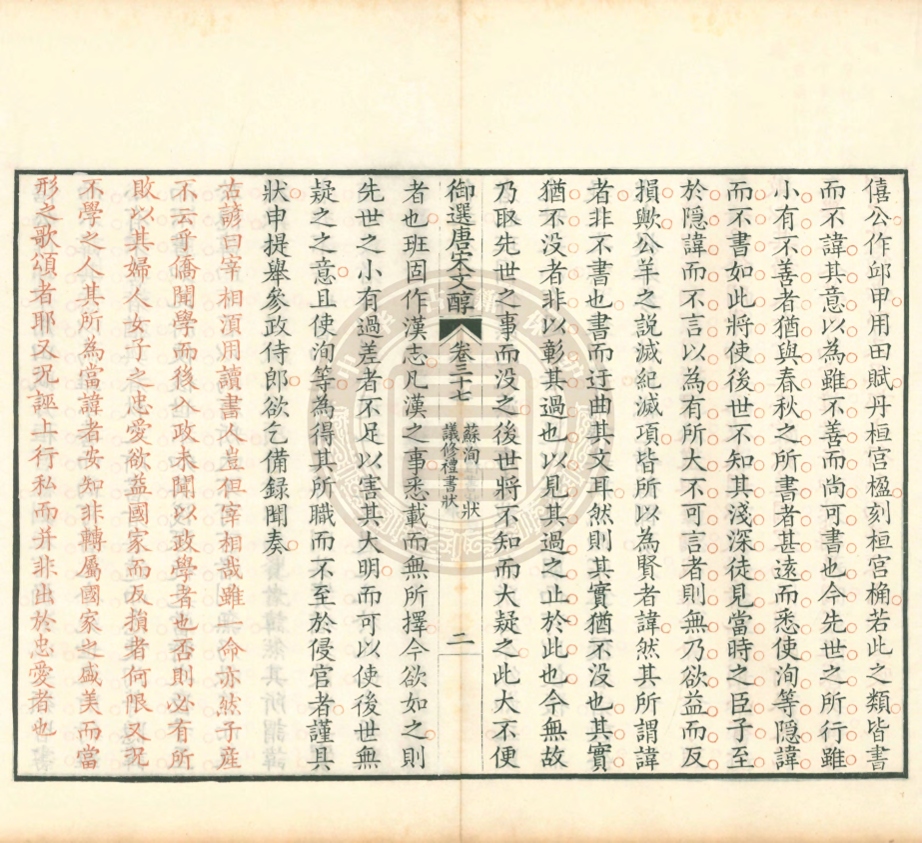 僖公作邱甲用田賦丹桓宫楹刻桓宫桷若此之類皆書
而不諱其意以為雖不善而尚可書也今先世之所行雖
小有不善者猶與春秋之所書者甚遠而悉使洵等隱諱
而不書如此將使後世不知其淺深徒見當時之臣子至
於隱諱而不言以為有所大不可言者則無乃欲益而反
損歟公羊之説滅紀滅項皆所以為賢者諱然其所謂諱
者非不書也書而迂曲其文耳然則其實猶不没也其實
猶不没者非以彰其過也以見其過之止於此也今無故
乃取先世之事而没之後世將不知而大疑之此大不便
御選唐宋文醇
卷三十七
蘇洵 狀
議修禮書狀
二
者也班固作漢志凡漢之事悉載而無所擇今欲如之則
先世之小有過差者不足以害其大明而可以使後世無
疑之之意且使洵等為得其所職而不至於侵官者謹具
狀申提舉參政侍郎欲乞備録聞奏
古諺曰宰相須用讀書人豈但宰相哉雖一命亦然子産
不云乎僑聞學而後入政未聞以政學者也否則必有所
敗以其婦人女子之忠愛欲益國家而反損者何限又況
不學之人其所為當諱者安知非轉屬國家之盛美而當
形之歌頌者耶又況誣上行私而并非出於忠愛者也